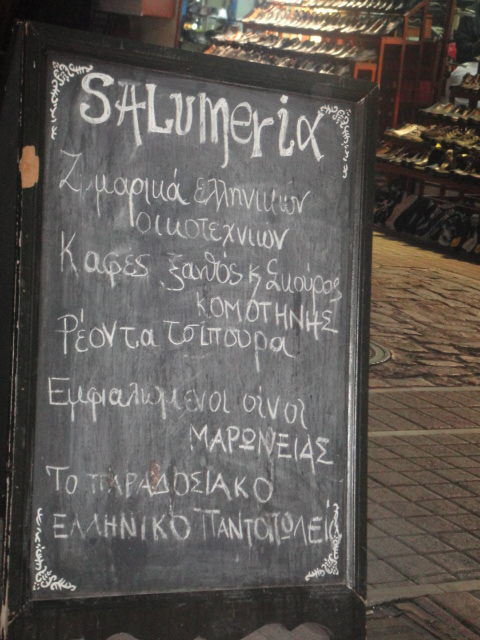 SALumeria
Ζυμαρικά ελληνικών
οικοτεχνιών
Καφές ξανθός κ Σκούρος
ΚΟΜΟΤΗΝΗΣ
Ρέοντα τσίπουρα
Εμφιαλωμένοι οίνοι
ΜΑΡΩΝΕΙΑΣ
Το ΠΑΡΑΔΟΣΙΑΚΟ
ΕΛΛΗΝΙΚΟ ΠΑΝΤΟΠΩΛΕΙΟ